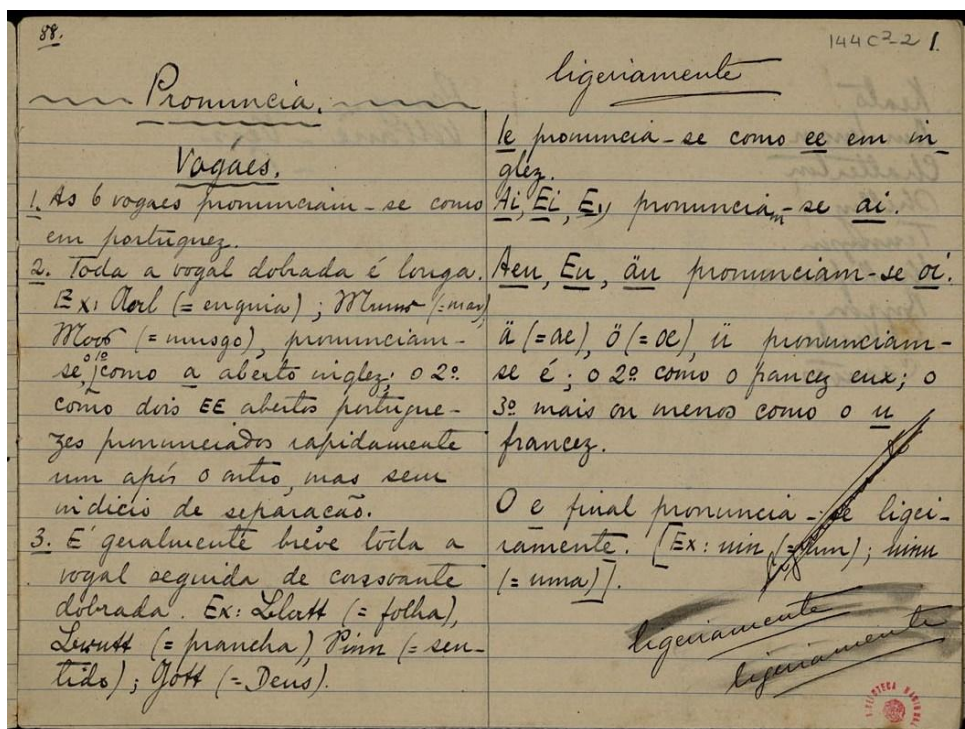 88.
Pronuncia.
Vogáes.
1. As 6 vogaes pronunciam-se como
em portuguez.
2. Toda a vogal dobrada é longa.
Ex: Aal (= enguia); (= mar),
Moos (= musgo), pronunciam-
se, o 1º como a aberto inglez; o 2º
como dois EE abertos portugue-
zes pronunciados rapidamente
um após o outro, mas sem
indicio de separacão.
3. É geralmente breve toda a
vogal seguida de consoante
dobrada. Ex: Blatt (= folha),
(= prancha), Sinn (= sen-
tido); Gott (= Deus).
144C²-2 1.
ligeriamente
Ie pronuncia-se como ee em in
glez.
Ai, Ei, Ey pronunciam-se ai.
Aeu, Eu, äu pronunciam-se oi.
ä (= ae), ö (= oe), ü pronunciam-
se é; o 2º como o francez eux; o
3º mais ou menos como o u
francez.
O e final pronuncia-se ligei-
ramente. [Ex: ein (= um); eine
(= uma)].
ligeriamente
ligeriamente
BIBLIOTECA NACIONAL